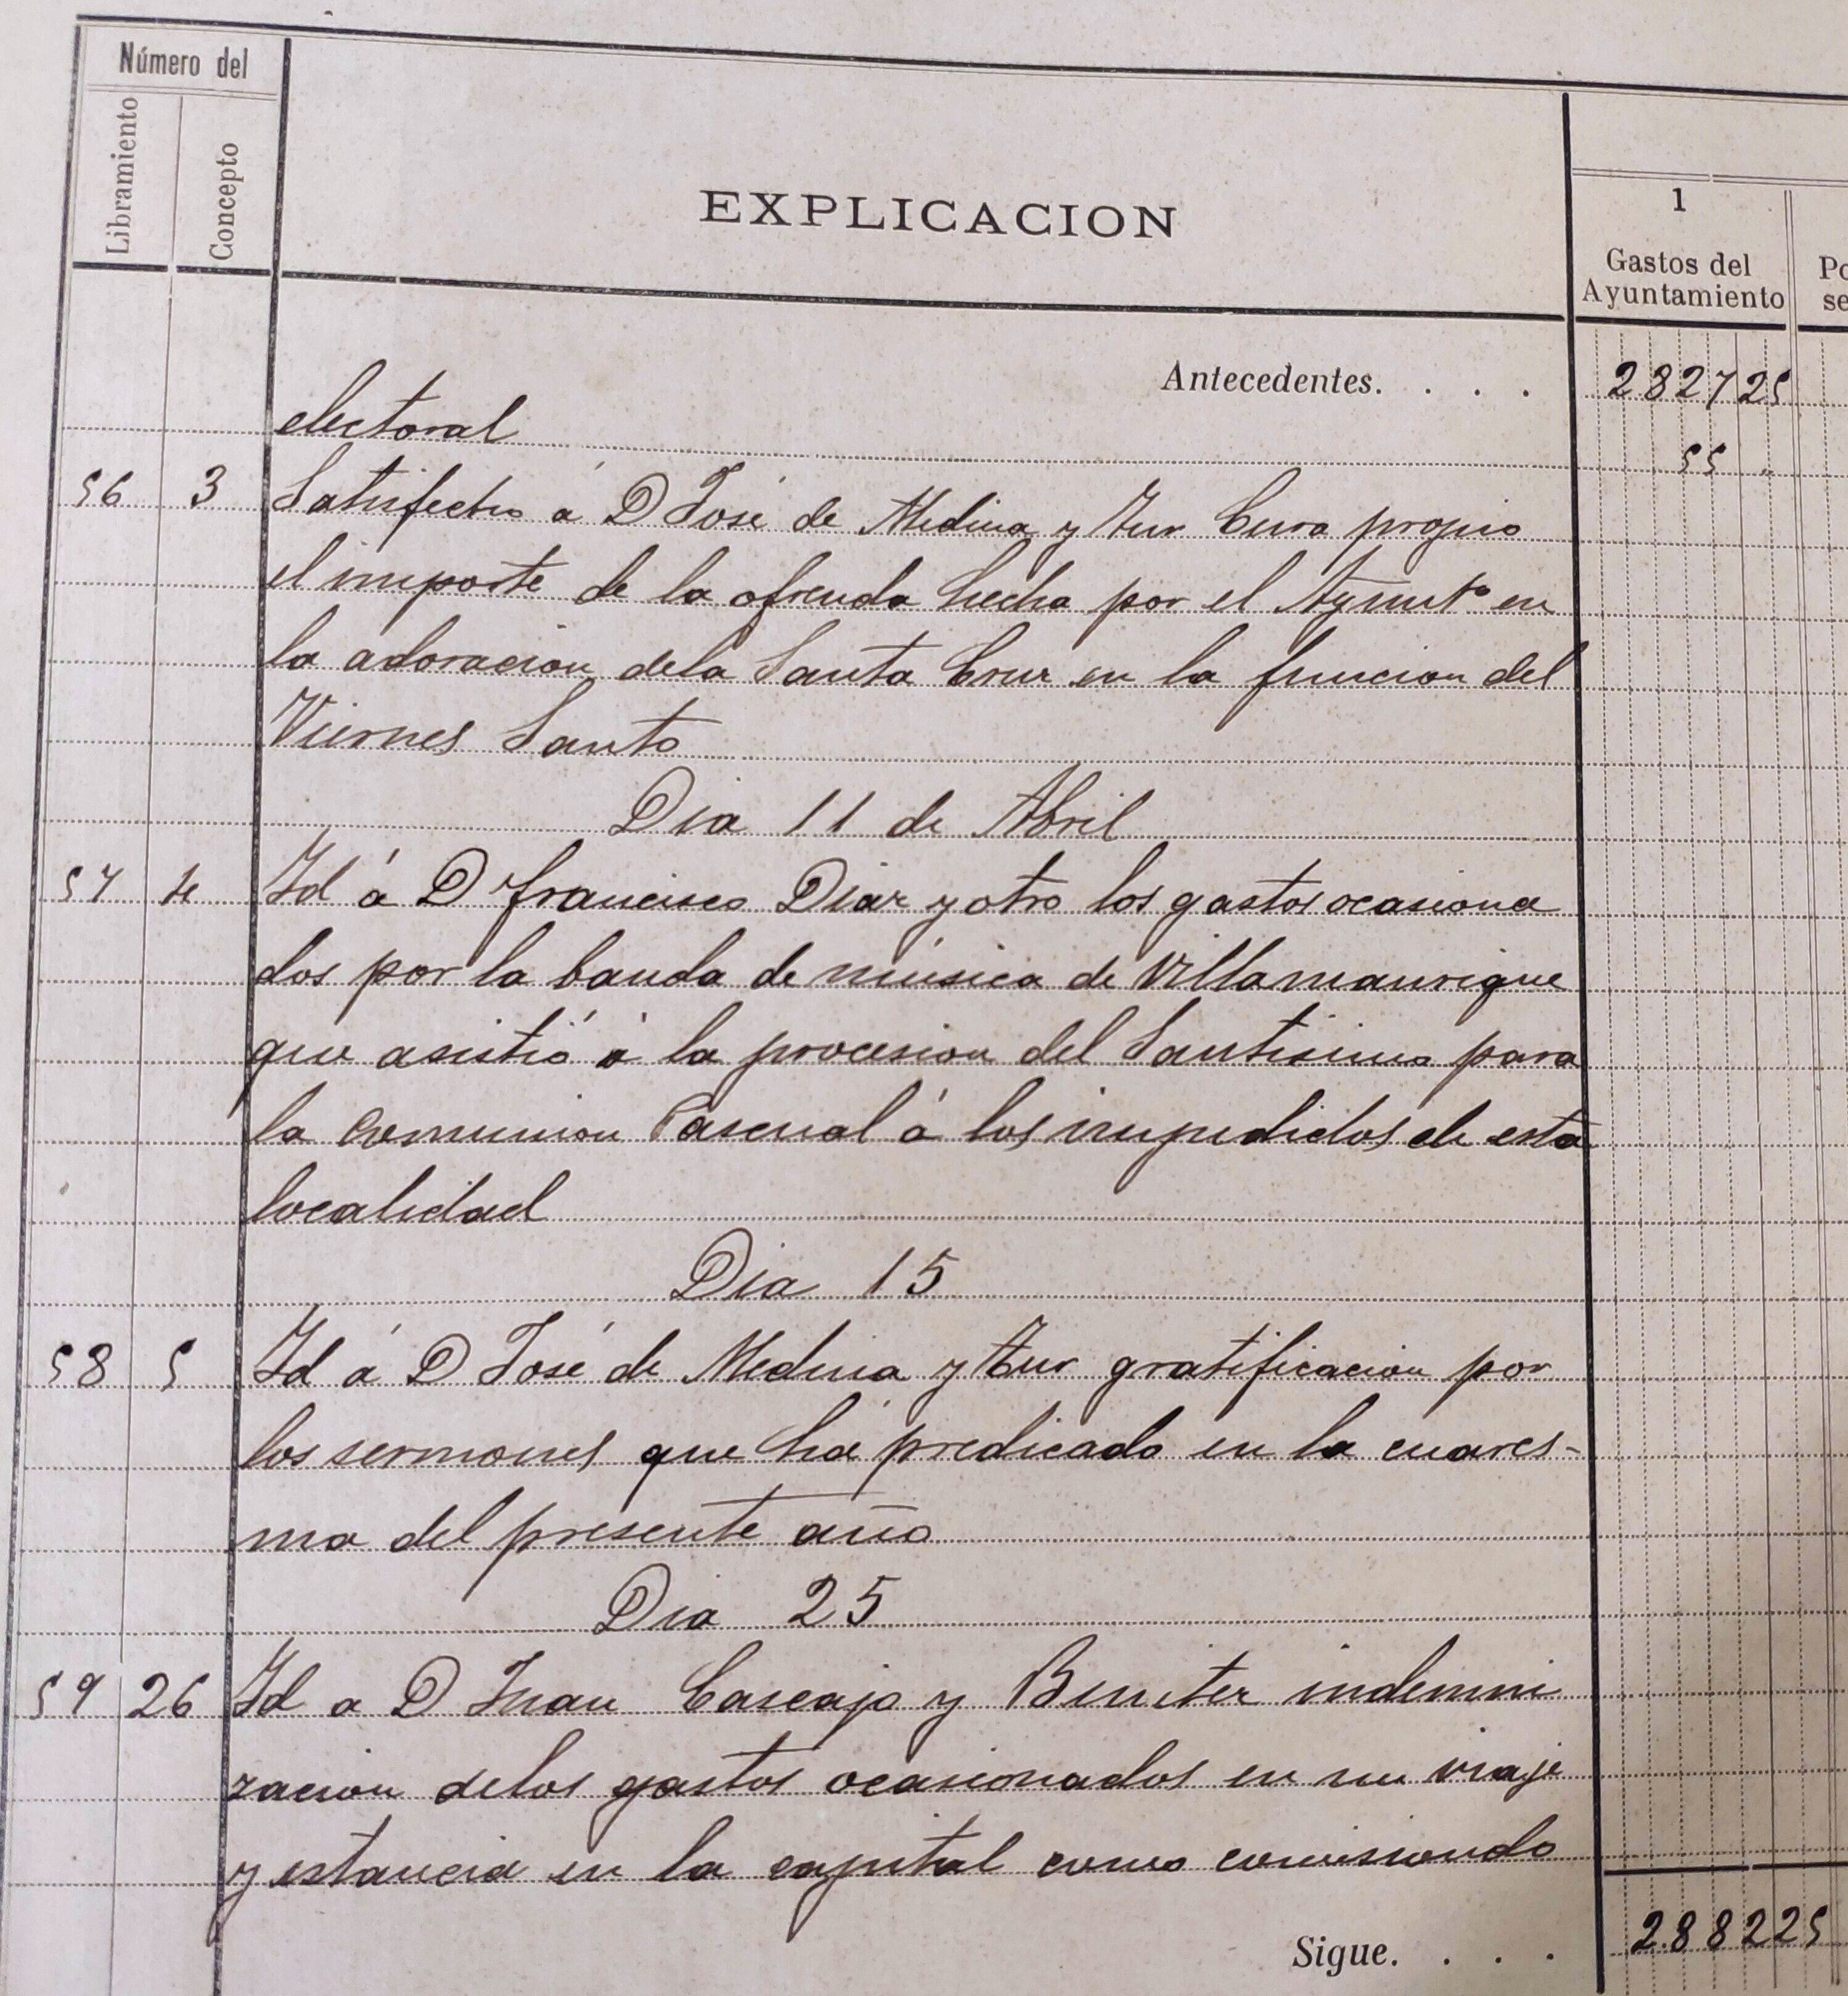 Número del
Libramiento
Concepto
EXPLICACION
1
Gastos del
Ayuntamiento
Po
se
Antecedentes. . . . 2827 25
electoral 55 "
56 3 Satisfecho á D José de Medina y Aur Cura propio
el importe de la ofrenda hecha por el Ayuntº en
la adoracion dela Santa Cruz en la funcion del
Viernes Santo
Dia 11 de Abril
57 4 Id á D Francisco Diaz y otro los gastos ocasiona
dos por la banda de música de Villamanrique
que asistió á la procesion del Santisimo para
la comunion Pascual á los impedidos de esta
localidad
Dia 15
58 5 Id á D José de Medina y Aur gratificacion por
los sermones que há predicado en la cuares-
ma del presente año
Dia 25
59 26 Id a D Juan Cascajo y Benitez indemni
zacion delos gastos ocasionados en su viaje
y estancia en la capital como comisiondo
Sigue. . . . 2.882 25